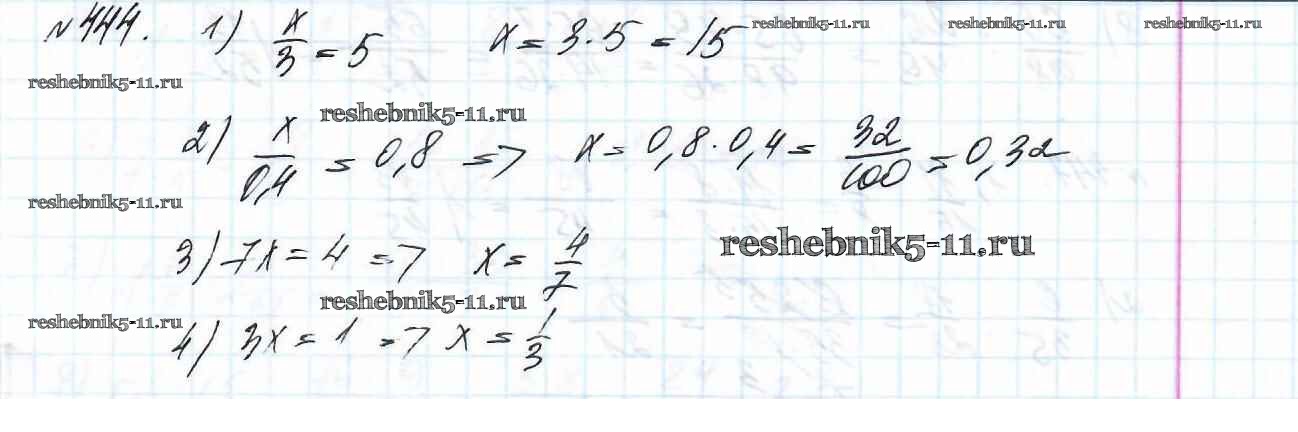 №444. 1) x/3 = 5 x = 3·5 = 15 reshebnik5-11.ru reshebnik5-11.ru reshebnik5-11.ru
reshebnik5-11.ru
reshebnik5-11.ru
2) x/0,4 = 0,8 => x = 0,8·0,4 = 32/100 = 0,32
reshebnik5-11.ru
reshebnik5-11.ru
3) 7x = 4 => x = 4/7
reshebnik5-11.ru
reshebnik5-11.ru
4) 3x = 1 => x = 1/3